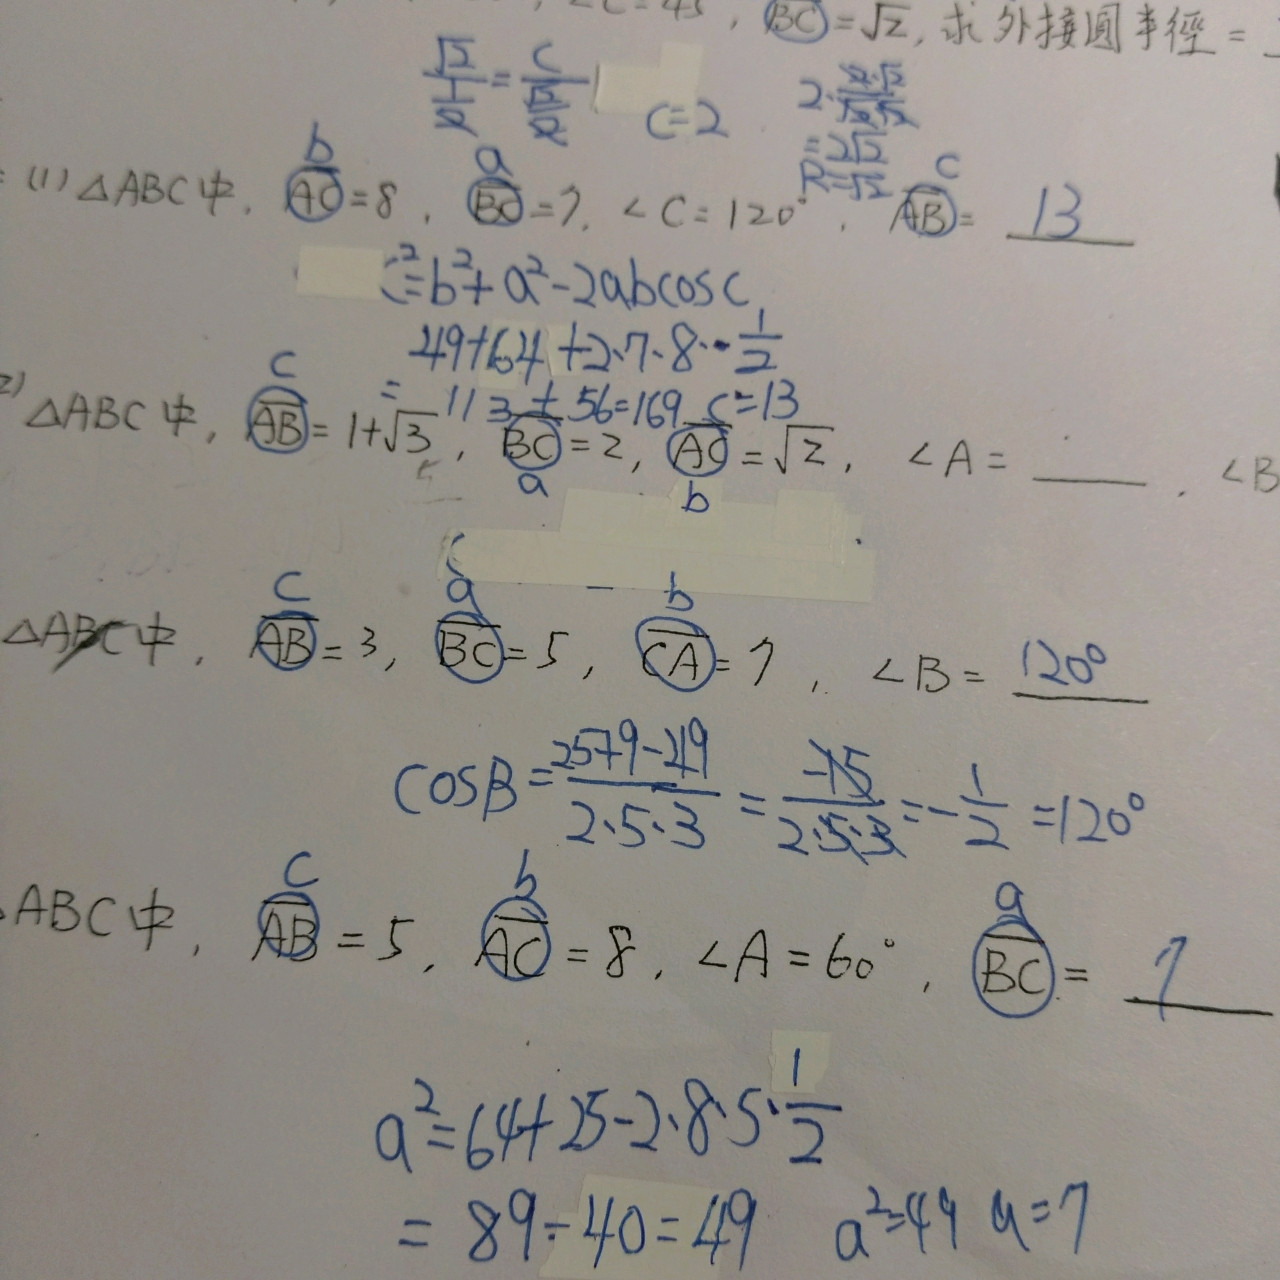 ∠C=45°, BC=√2, 求外接圓半徑=
√2/(1/2) = C/(√2/2) C=2
=2√2
R=√2
b a c
(1) △ABC中, AC=8, BC=7, ∠C=120°, AB= 13
c²=b²+a²-2abcosC
49+64+2·7·8·-1/2
= 113+56=169 c=13
c
2) △ABC中, AB=1+√3, BC=2, AC=√2, ∠A=____, ∠B
a b
c a b
△ABC中, AB=3, BC=5, CA=7, ∠B= 120°
cosB=(25+9-49)/(2·5·3)=-15/(2·5·3)=-1/2=120°
c b a
ABC中, AB=5, AC=8, ∠A=60°, BC= 7
a²=64+25-2·8·5·1/2
=89-40=49 a²=49 a=7